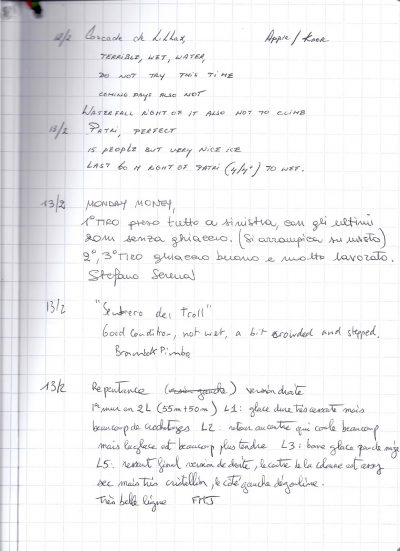 12/2 Cascade de Lillaz, Appie / Knor
TERRIBLE, WET, WATER,
DO NOT TRY THIS TIME
COMING DAYS ALSO NOT
WATERFALL RIGHT OF IT ALSO NOT TO CLIMB
13/2 PATRI, PERFECT
IS PEOPLE BUT VERY NICE ICE
LAST 60 M RIGHT OF PATRI (4/4+) TO WET.
13/2 MONDAY MONEY,
1° TIRO preso tutto a sinistra, con gli ultimi
20m senza ghiaccio. (Si arrampica su misto)
2°, 3° TIRO ghiaccio buono e molto lavorato.
Stefano Serena
13/2 "Sentiero dei Troll"
Good Condition, not wet, a bit crowded and stepped.
13/2 Repentance (version gauche) version droite
1er mur en 2L (55m+50m) L1: glace dure très cassante mais
beaucoup de crochetages L2: retour au centre qui coule beaucoup
mais la glace est beaucoup plus tendre L3: bonne glace pas de neige
L5: ressaut final version de droite, le centre de la colonne est assez
sec mais très cristallin, le côté gauche dégouline.
Très belle ligne